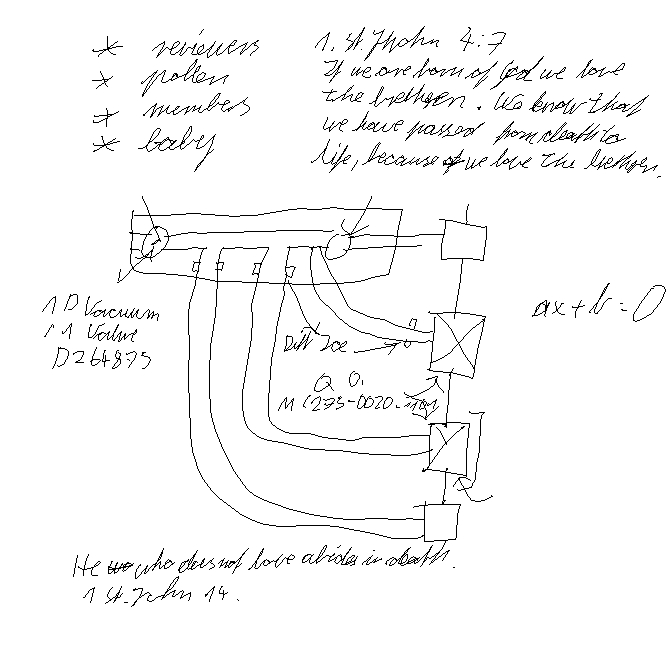 * reviewers
* pollen
* members
* baby
1. St. Jhohn 4:7
If we are born of God we love
the brethren. We know that
we have passed from death to
life, because we love the brethren.
1 D Vacuum
1 1 Valve
D264875
ax + b = 0
Q 0.
M C273-0020-1101
He who does not love abides in death.
1 St. John 14.